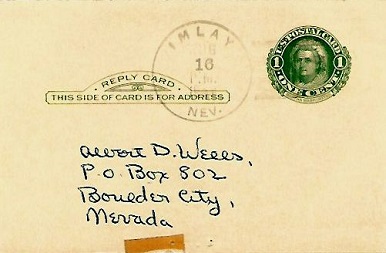 IMLAY
16
P.M.
NEV.
U.S. POSTAL CARD
1 1
ONE CENT
REPLY CARD
THIS SIDE OF CARD IS FOR ADDRESS
Albert D. Wells,
P.O. Box 802
Boulder City,
Nevada